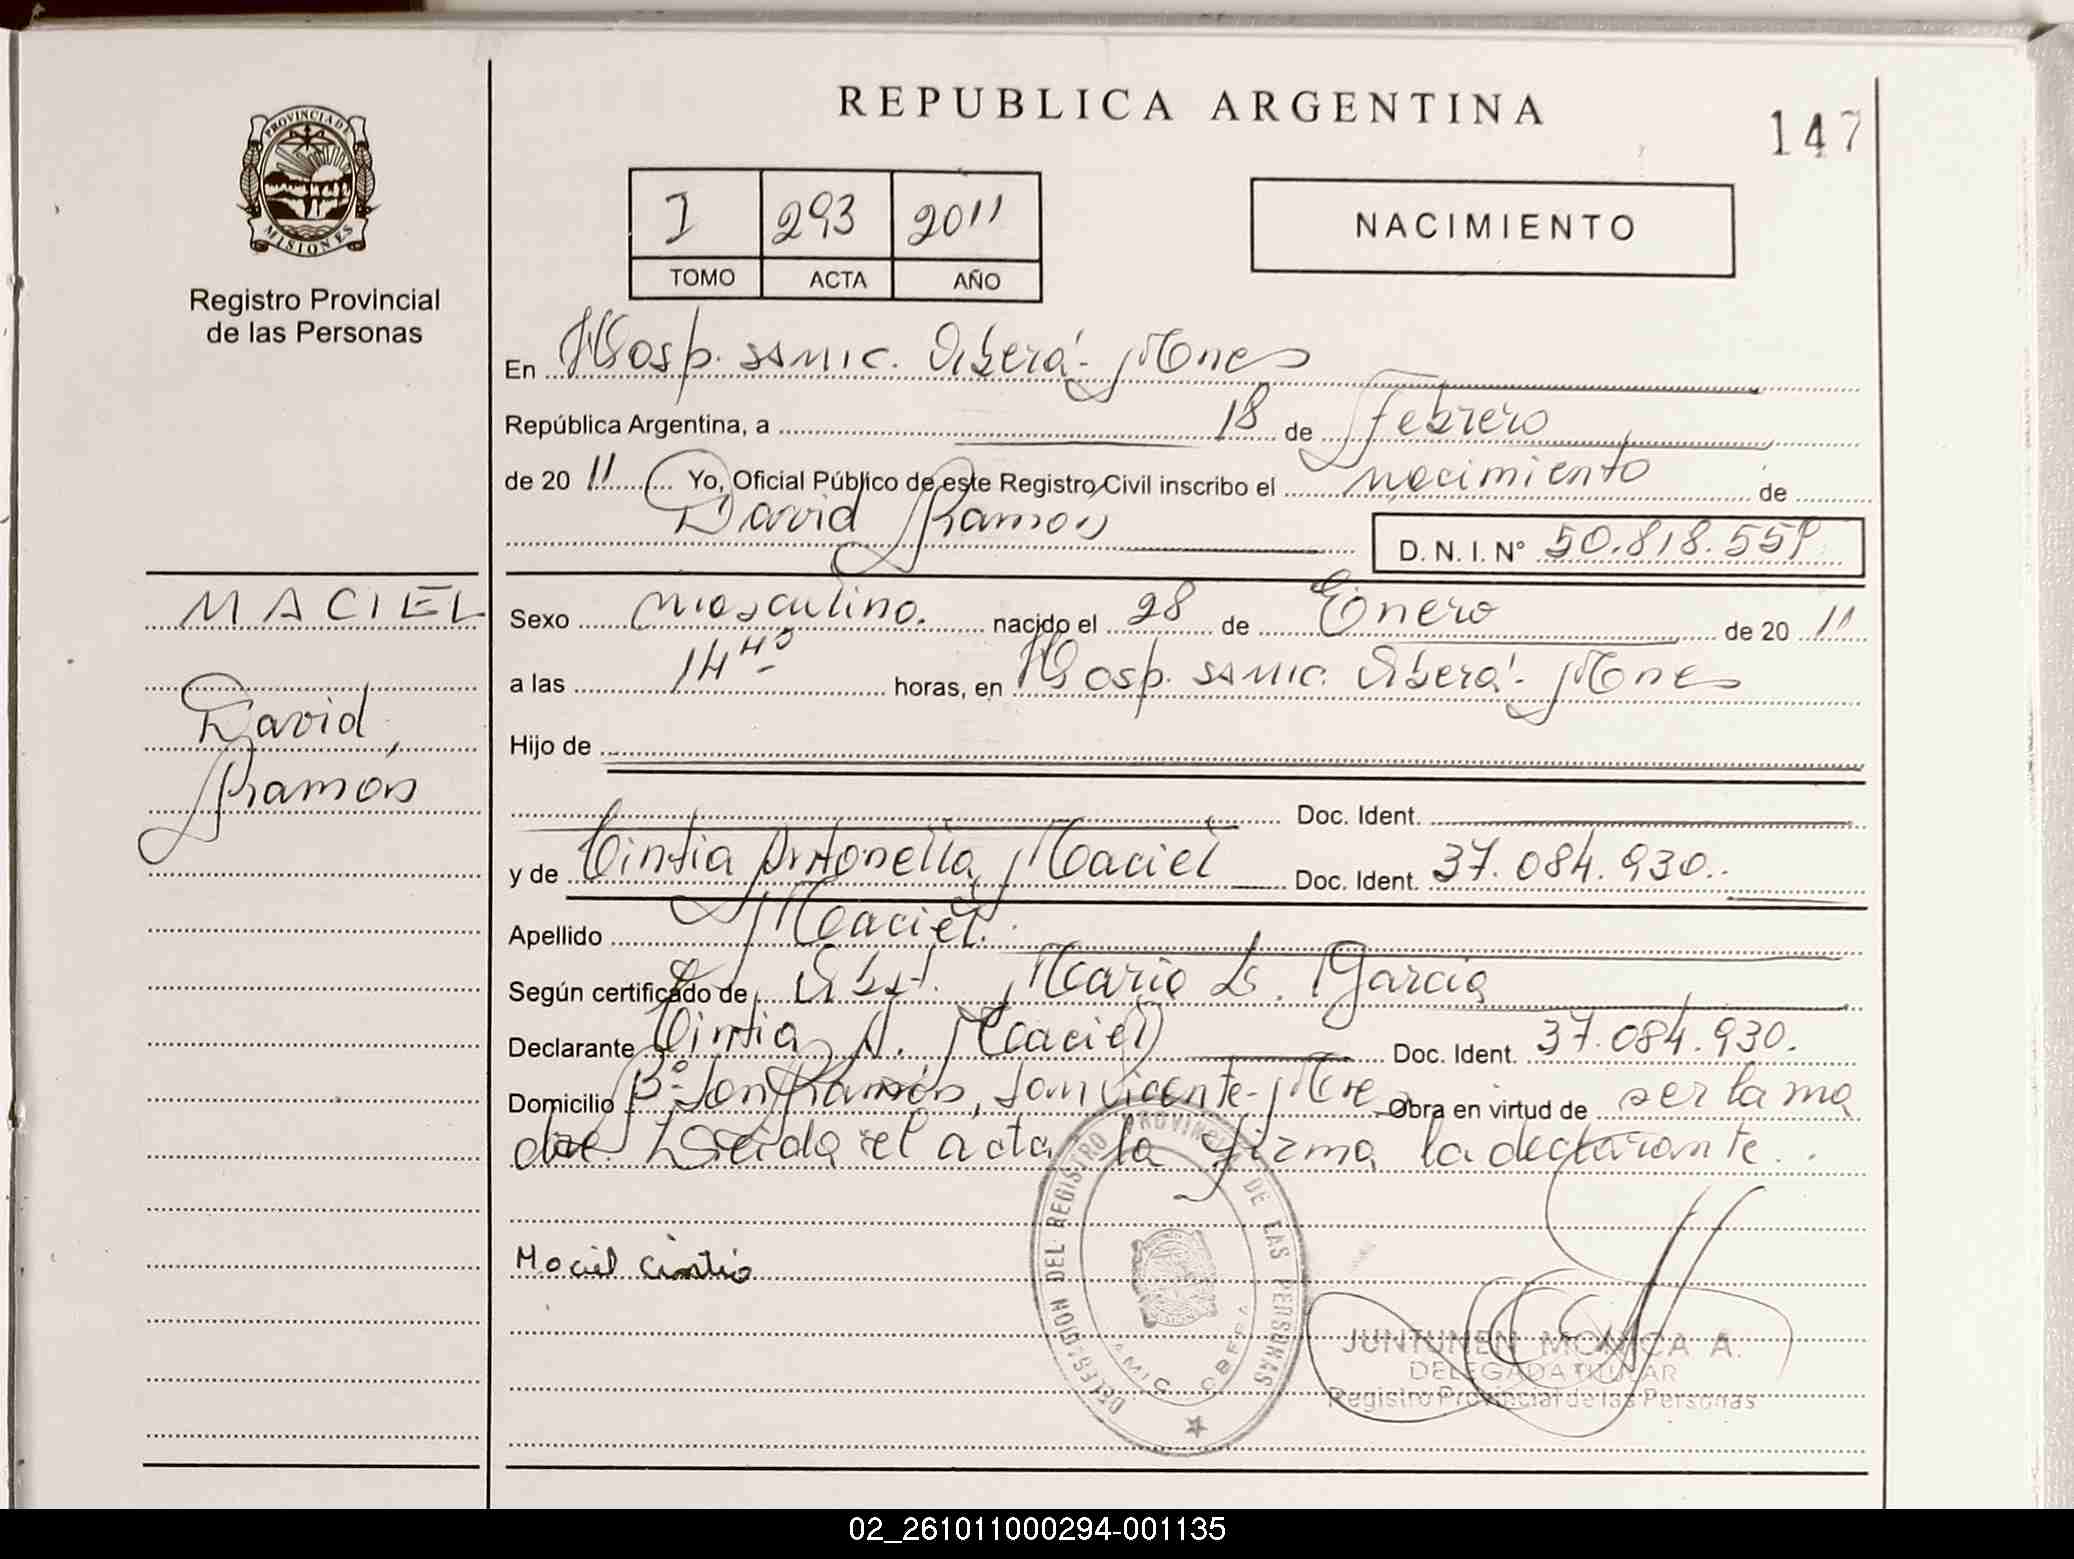 REPUBLICA ARGENTINA
147
PROVINCIA DE
MISIONES
Registro Provincial
de las Personas
I 293 2011
TOMO ACTA AÑO
NACIMIENTO
En Hosp. SAMIC. Oberá - Mnes
República Argentina, a 18 de Febrero
de 20 11 Yo, Oficial Público de este Registro Civil inscribo el nacimiento de
David Ramón
D. N. I. N° 50.818.559
MACIEL
David
Ramón
Sexo masculino. nacido el 28 de Enero de 20 11
a las 14 40 horas, en Hosp. SAMIC. Oberá - Mnes
Hijo de
Doc. Ident.
y de Cintia Antonella Maciel Doc. Ident. 37.084.930.
Apellido Maciel.
Según certificado de Obst. Mario L. Garcia
Declarante Cintia A. Maciel Doc. Ident. 37.084.930.
Domicilio B° San Ramón, San Vicente - Mnes Obra en virtud de ser la ma
dre. Leida el acta la firma la declarante.
Maciel Cintia
DELEGACION DEL REGISTRO PROVINCIAL DE LAS PERSONAS
OBERA
JUNTUNEN MONICA A.
DELEGADA TITULAR
Registro Provincial de las Personas
02_261011000294-001135